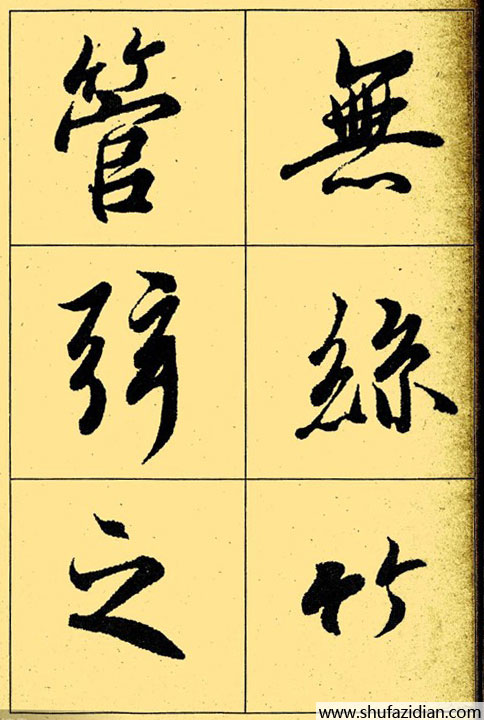 無絲竹
管弦之
www.shufazidian.com